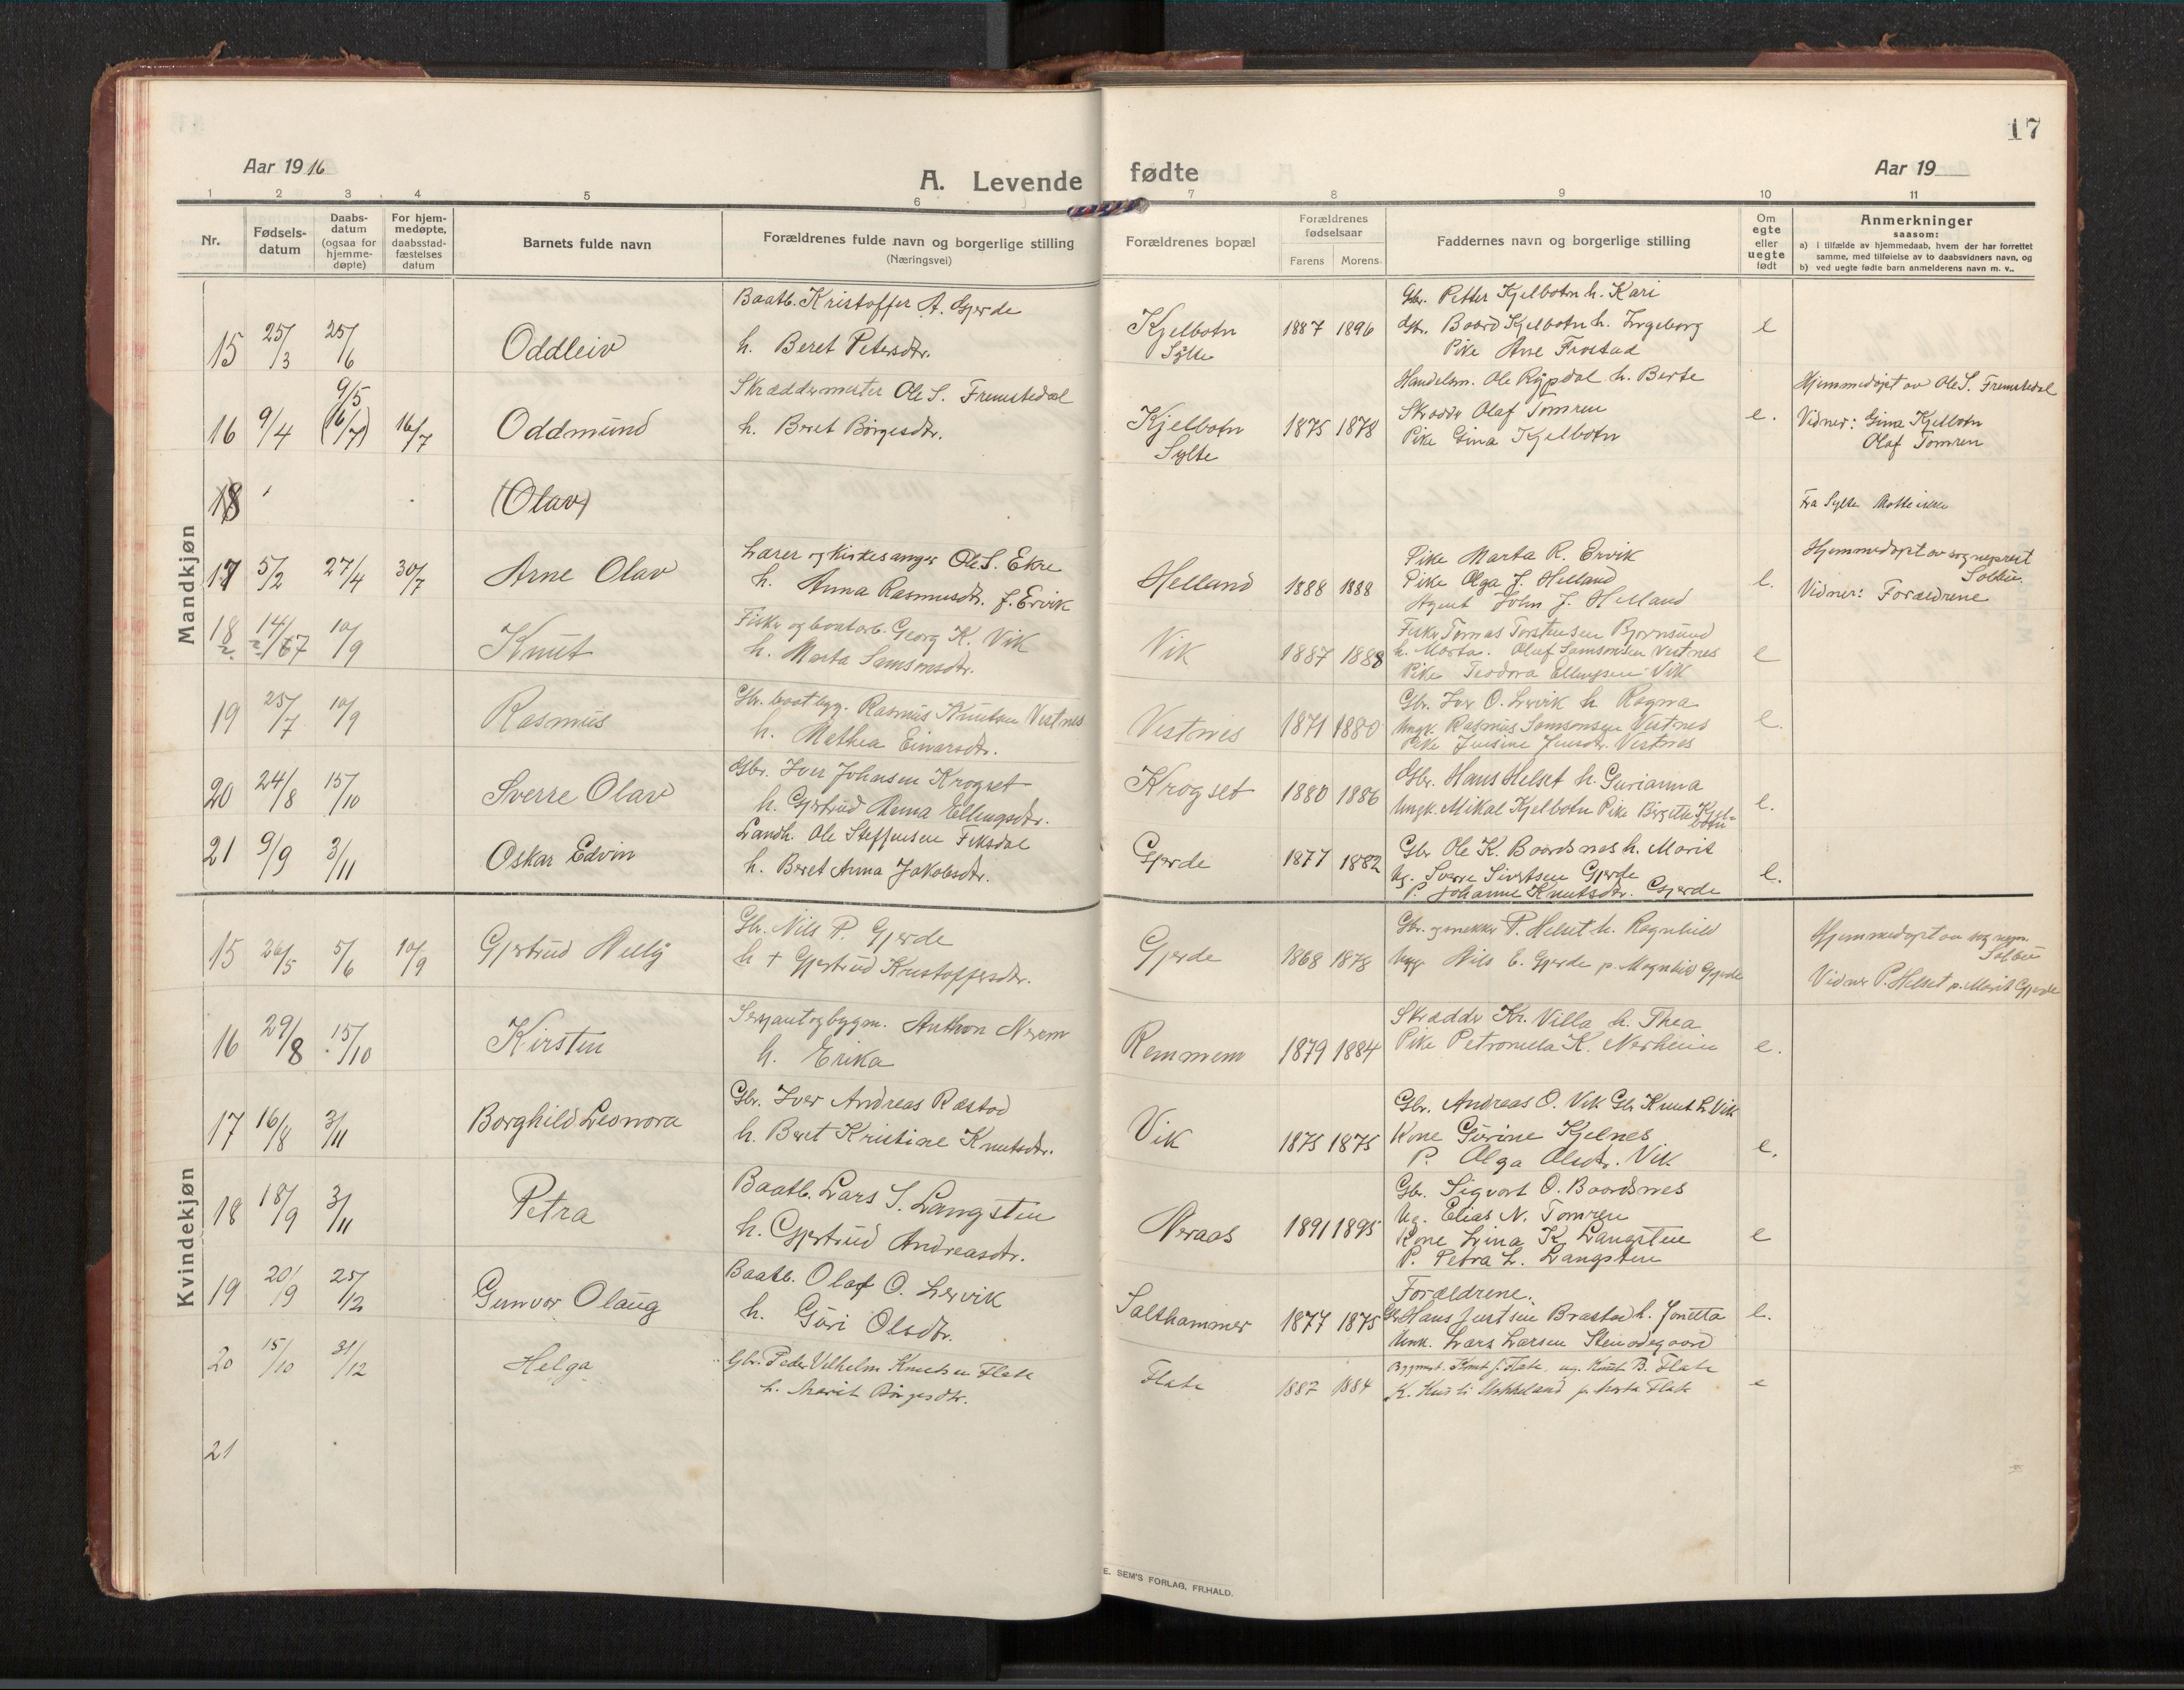 17
Aar 1916
A. Levende fødte
Aar 19
1 2 3 4 5 6 7 8 9 10 11
Nr.
Fødsels-
datum
Daabs-
datum
(ogsaa for
hjemme-
døpte)
For hjem-
medøpte,
daabsstad-
fæstelses
datum
Barnets fulde navn
Forældrenes fulde navn og borgerlige stilling
(Næringsvei)
Forældrenes bopæl
Forældrenes
fødselsaar
Farens Morens
Faddernes navn og borgerlige stilling
Om
egte
eller
uegte
født
Anmerkninger
saasom:
a) i tilfælde av hjemmedaab, hvem der har forrettet
samme, med tilføielse av to daabsvidners navn, og
b) ved uegte fødte barn anmelderens navn m. v..
Mandkjøn
Baatb. Kristoffer A. Gjerde
15 25/3 25/6 Oddleiv h. Beret Petersdtr.
Kjelbotn
Sylte
1887 1896
Gbr. Petter Kjelbotn h. Kari
Gbr. Baard Kjelbotn h. Ingeborg
Pike Ane Frostad
e
Skræddermester Ole S. Fremstedal
16 9/4 9/5 (16/7) 16/7 Oddmund h. Beret Børgesdtr.
Kjelbotn
Sylte
1875 1878
Handelsm. Ole Rypdal h. Berte
Skrædd. Olaf Tomren
Pike Gina Kjelbotn
e.
Hjemmedøpt av Ole S. Fremstedal
Vidner: Gina Kjelbotn
Olaf Tomren
18 (Olav)
Fra Sylte
17 5/2 27/4 30/7 Arne Olav
Lærer og kirkesanger Ole S. Ekre
h. Anna Rasmusdtr. f. Ervik
Helland
1888 1888
Pike Marta R. Ervik
Pike Olga J. Helland
Agent John J. Helland
e.
Hjemmedøpt av sogneprest
Solbu
Vidner: Forældrene
18 14/7 10/9 Knut
Fisker og baatarb. Georg K. Vik
h. Marta Samsonsdtr.
Vik
1887 1888
Fisker Tomas Torstensen Bjørnsund
h. Marta. Oluf Samsonsen Vestnes
Pike Teodora Ellingsen Vik
e
19 25/7 10/9 Rasmus
Gbr. baatbyg. Rasmus Knutsen Vestnes
h. Mathea Einarsdtr.
Vestnes
1871 1880
Gbr. Iver O. Lervik h. Ragna
Ungk. Rasmus Samsonsen Vestnes
Pike Jensine Jensdtr. Vestnes
e.
20 24/8 15/10 Sverre Olav
Gbr. Iver Johansen Krogset
h. Gjertrud Anna Ellingsdtr.
Krogset
1880 1886
Gbr. Hans Helset h. Gurianna
Ungk. Mikal Kjelbotn Pike Birgithe Kjel-
botn
e.
21 9/9 3/11 Oskar Edvin
Landh. Ole Steffensen Fiksdal
h. Beret Anna Jakobsdtr.
Gjerde
1877 1882
Gbr. Ole K. Baardsnes h. Marit
Ug. Sverre Sivertsen Gjerde
P. Johanne Knutsdtr. Gjerde
e.
Kvindekjøn
15 26/5 5/6 10/9 Gjertrud Nelly
Gbr. Nils P. Gjerde
h + Gjertrud Kristoffersdtr.
Gjerde
1868 1878
Gbr. og snekker P. Helset h. Ragnhild
Ung. Nils E. Gjerde p. Magnhild Gjerde
Hjemmedøpt av sognepr.
Solbu
Vidner P. Helset p. Marit Gjerde
16 29/8 15/10 Kirsten
Sersjant og bygm. Anthon Nerem
h. Erika
Remmem
1879 1884
Skrædder Kr. Villa h. Thea
Pike Petronella K. Nerheim
e.
17 16/8 3/11 Borghild Leonora
Gbr. Iver Andreas Rastad
h. Beret Kristine Knutsdtr.
Vik
1875 1875
Gbr. Andreas O. Vik Gbr Knut L. Vik
Kone Gurine Kjelnes
P. Olga Olsdtr. Vik
e.
18 18/9 3/11 Petra
Baatb. Lars S. Langsten
h. Gjertrud Andreasdtr.
Neraas
1891 1895
Gbr. Sigvart O. Baardsnes
Ug. Elias N. Tomren
Kone Lina K Langsten
P. Petra L. Langsten
e
19 20/9 25/12 Gunvor Olaug
Baatb. Olaf O. Lervik
h. Guri Olsdtr.
Salthammer
1877 1875
Forældrene.
Gbr Hans Justsen Brastad h. Jonetta
Unk. Lars Larsen Stenødegaard
e.
20 15/10 31/12 Helga
Gbr. Peder Vilhelm Knutsen Flate
h. Marit Børgesdtr.
Flate
1887 1884
Bygmest. Knut J. Flate, ug. Knut B. Flate
K. Stokkeland p. Marta Flate
e
21
E. SEM'S FORLAG, FR.HALD.